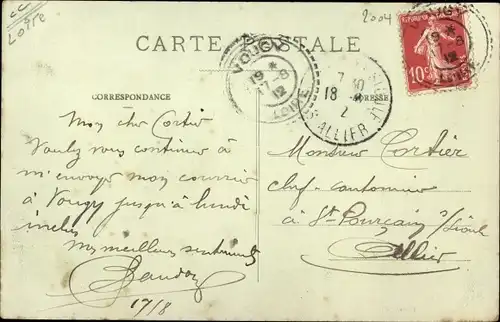 CC
Loire
2004
CARTE POSTALE
VOUGY
19 *
17-8
12
LOIRE
VOUGY
19 *
-8
12
10c
7 30
18 - 8
12
ALLIER
CORRESPONDANCE
ADRESSE
Mon cher Cortier
Voulez vous continuer à
m'envoyer mon courrier
à Vougy jusqu'à lundi
inclus
Mes meilleurs sentiments
17/8
Monsieur Cortier
chef-cantonnier
à St Pourçain s/Sioule
Allier